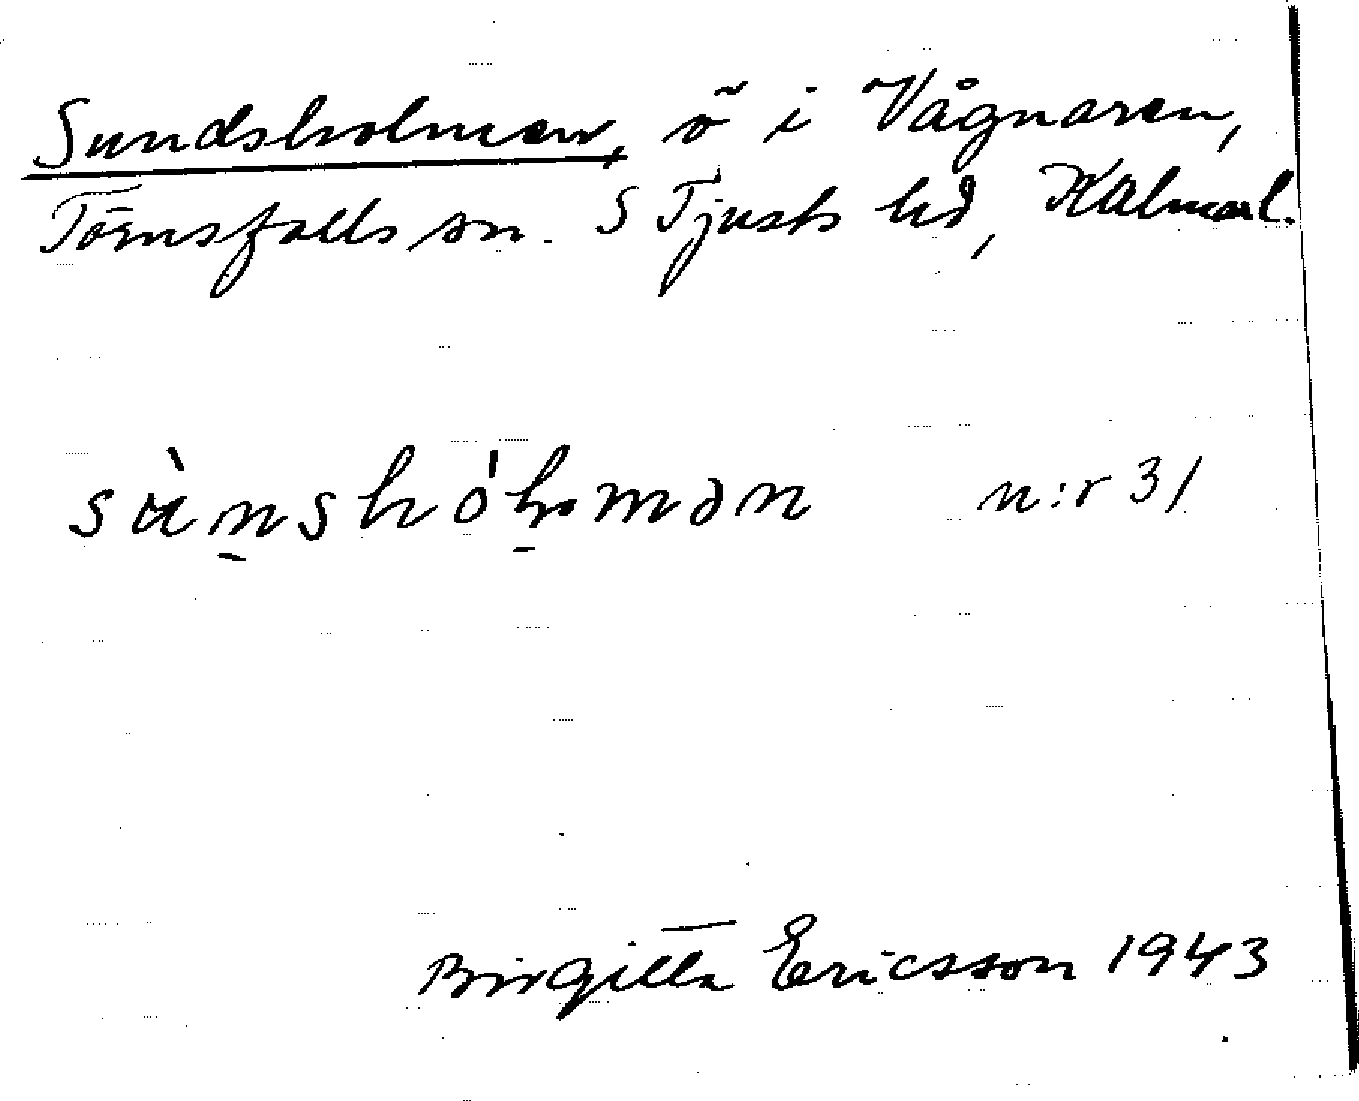 Sundsholmen, ö i Vågnaren,
Törnsfalls sn. S Tjusts hd, Kalmar l.
n:r 31
Birgitta Ericsson 1943